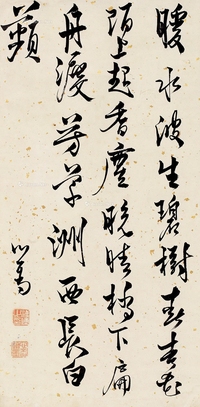 暖水波生碧樹春杏花
陌上起香塵晚晴橋下扁
舟渡芳草洲西長白
蘋
心畬